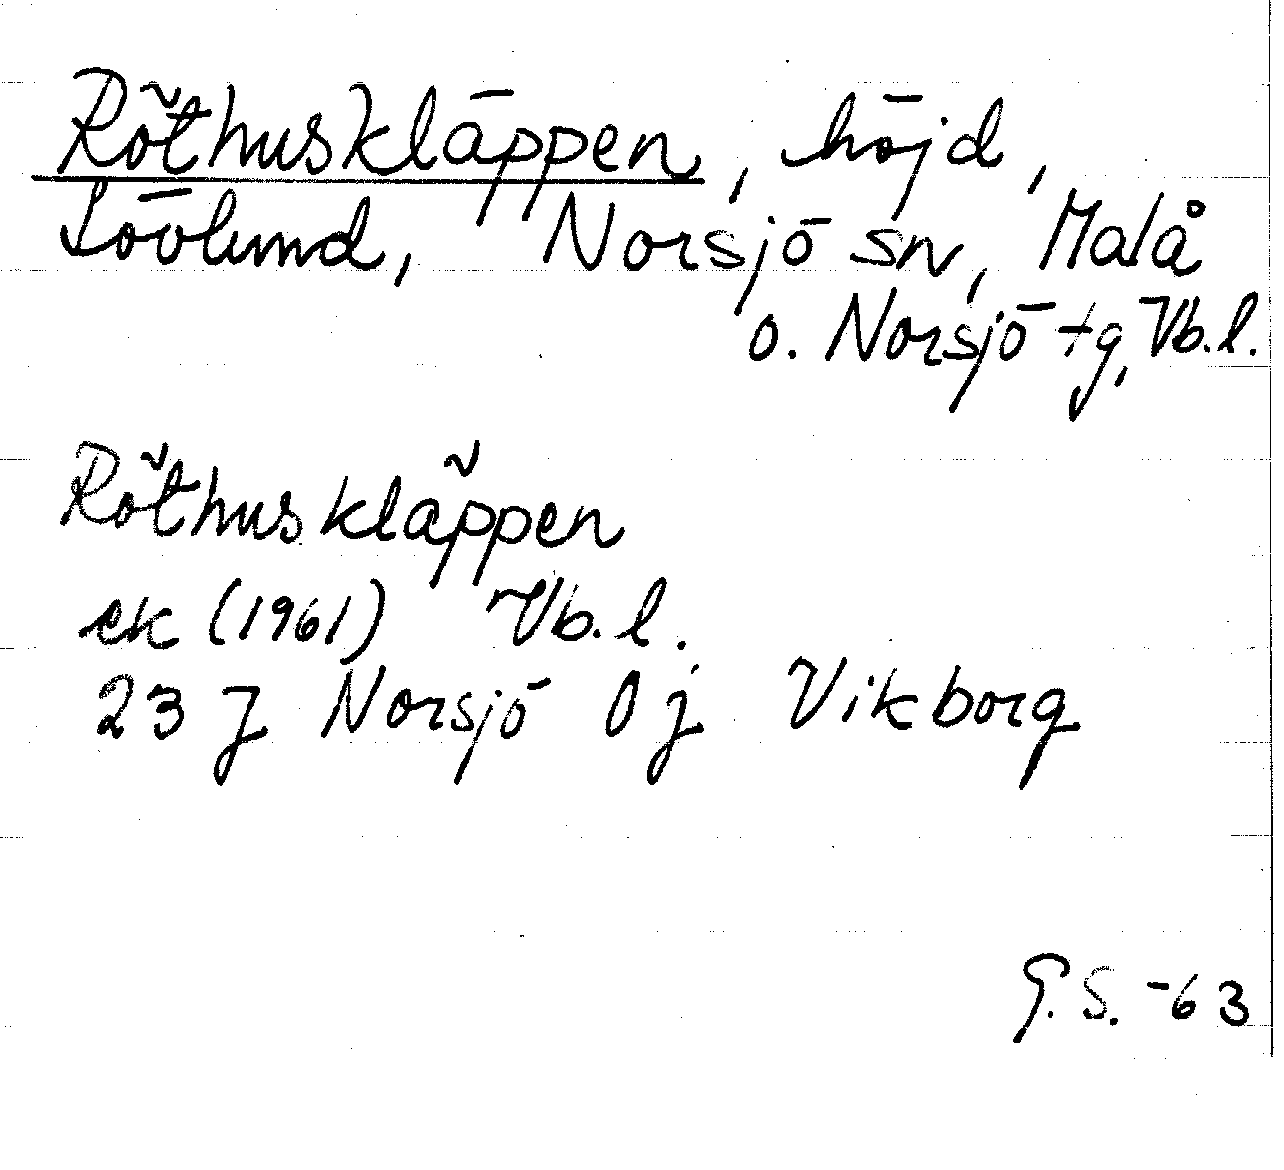 Röthuskläppen, höjd,
Lövlund, Norsjö sn, Malå
o. Norsjö tg, Vb.l.
Röthuskläppen
ek (1961) Vb.l.
23 J Norsjö 0 j Vikborg
G.S. -63